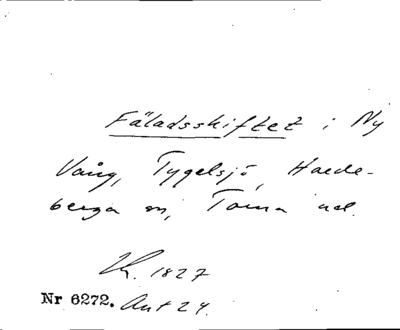 Fäladsskiftet i Ny
Vång, Tygelsjö, Harde-
berga sn, Torna hd.
1827
Nr 6272. Avt 24.